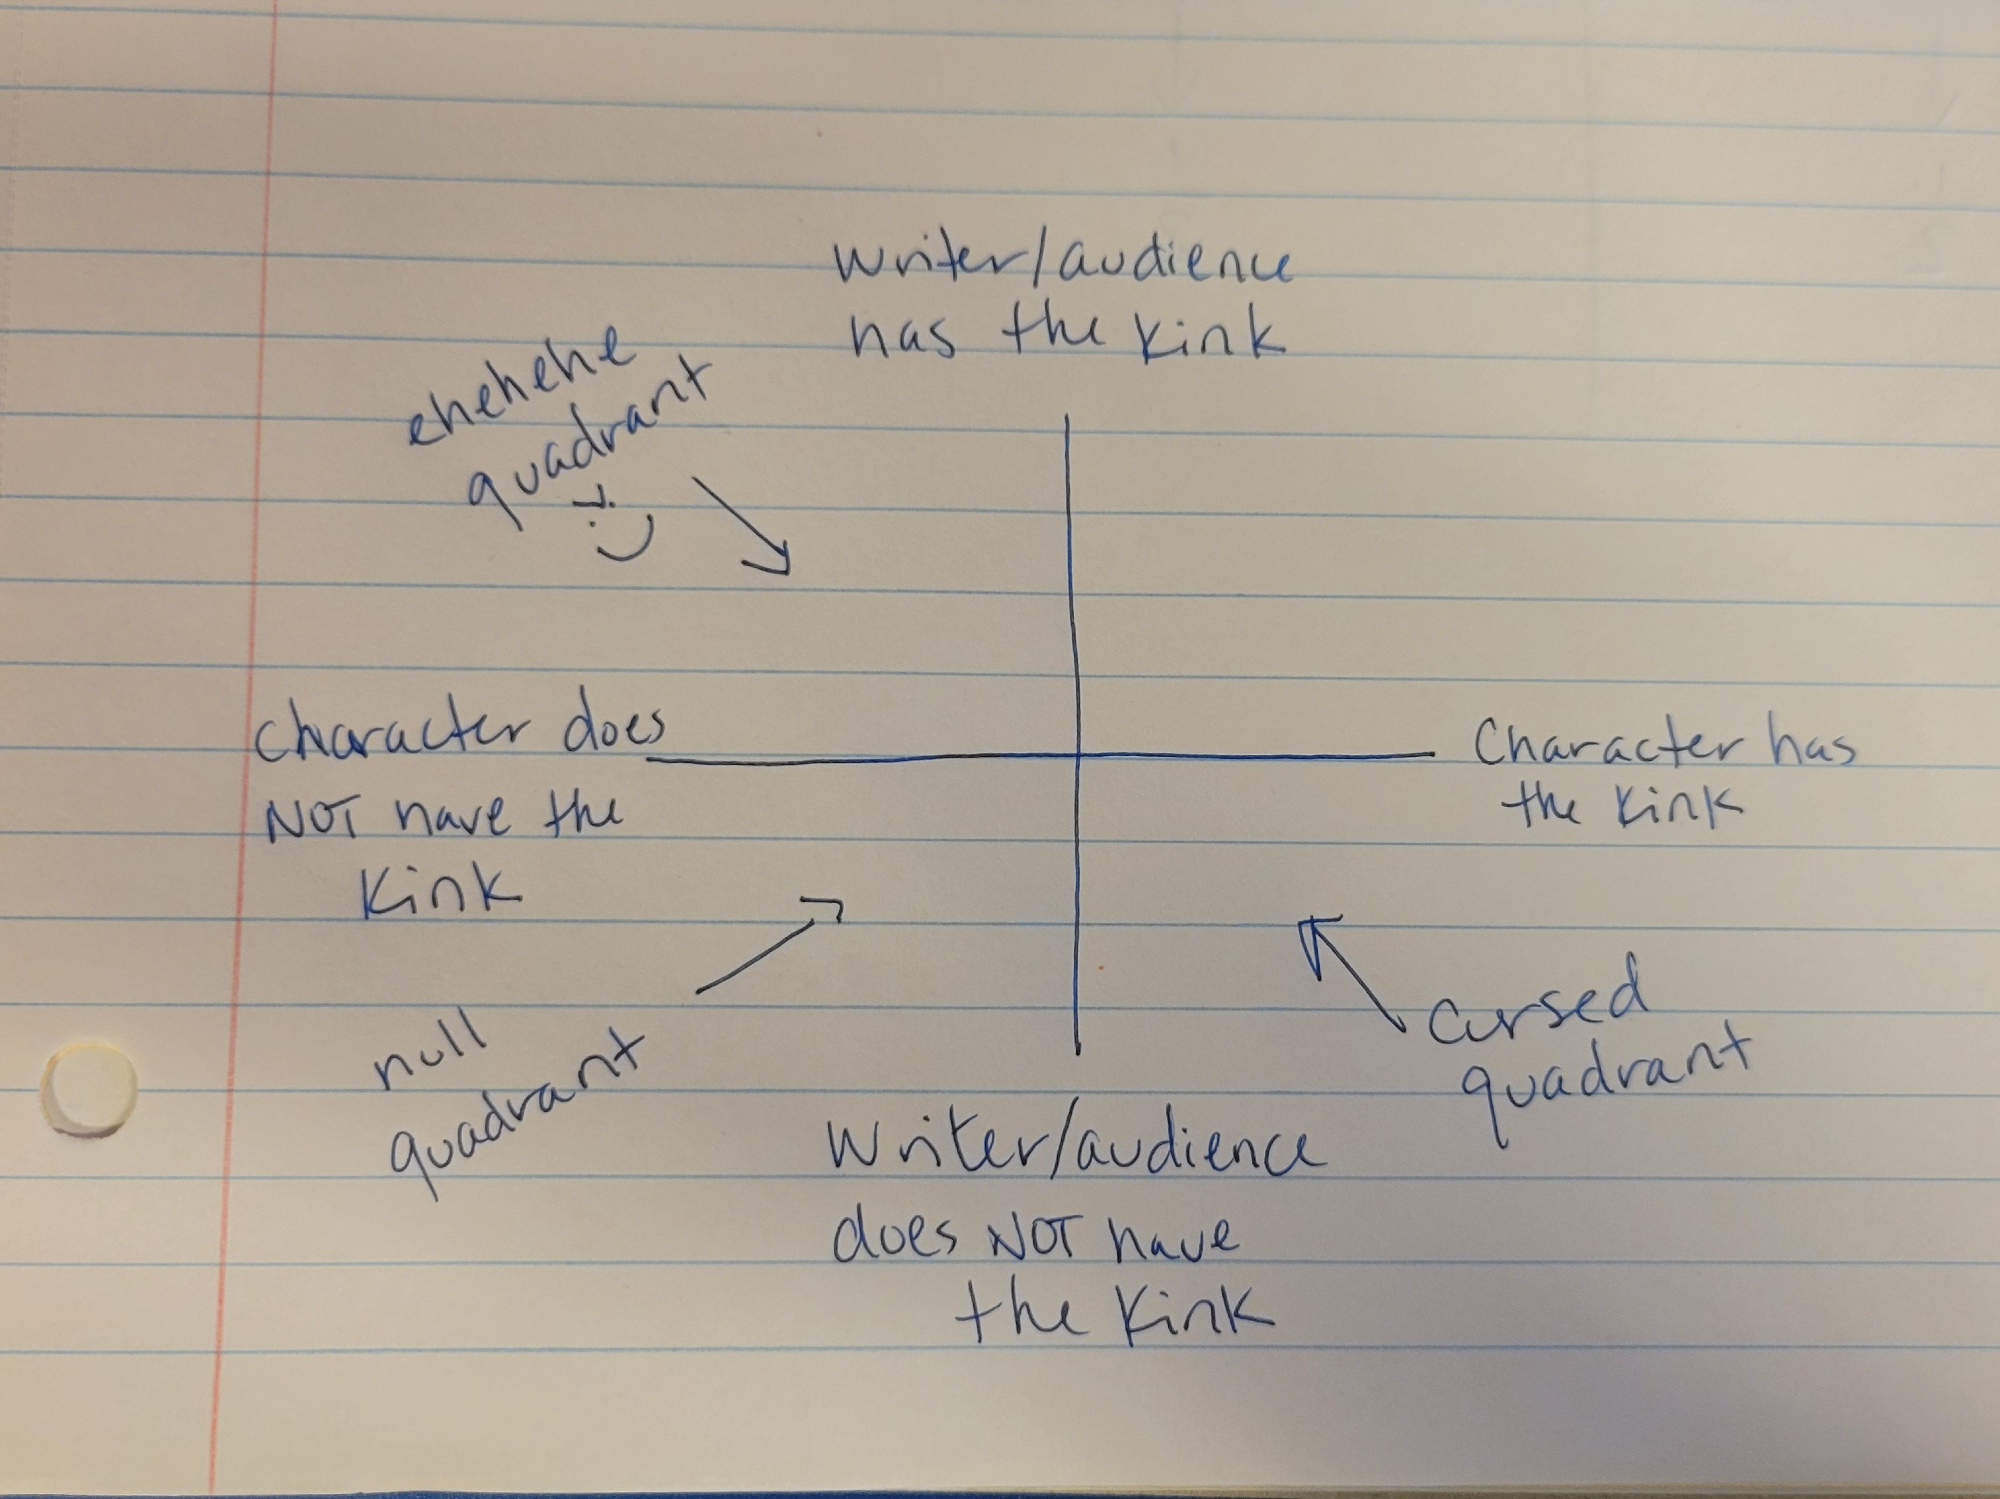 writer/audience
has the kink
ehehehe
quadrant
character does
NOT have the
kink
Character has
the kink
null
quadrant
cursed
quadrant
Writer/audience
does NOT have
the kink